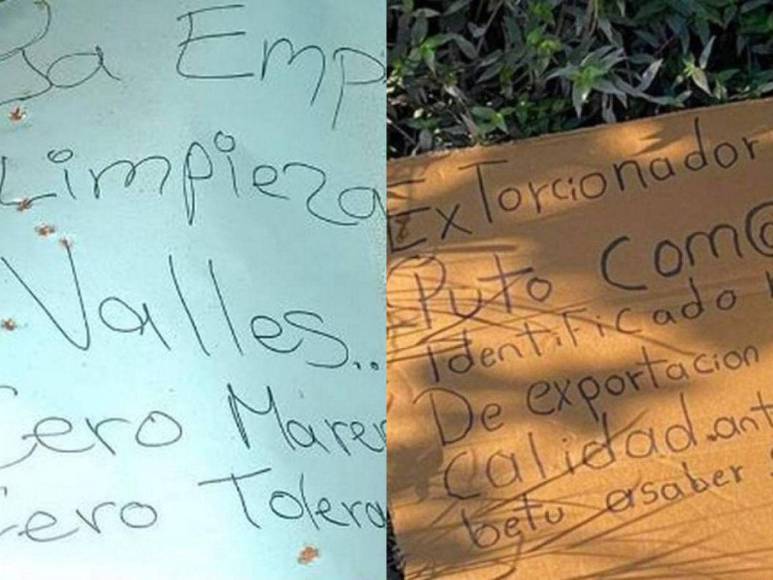 Ya Emp
Limpieza
Valles..
Cero Marer
Cero Tolera
ExTorcionador
Puto Com@
Identificado
De exportacion
calidad.ant
betu asaber